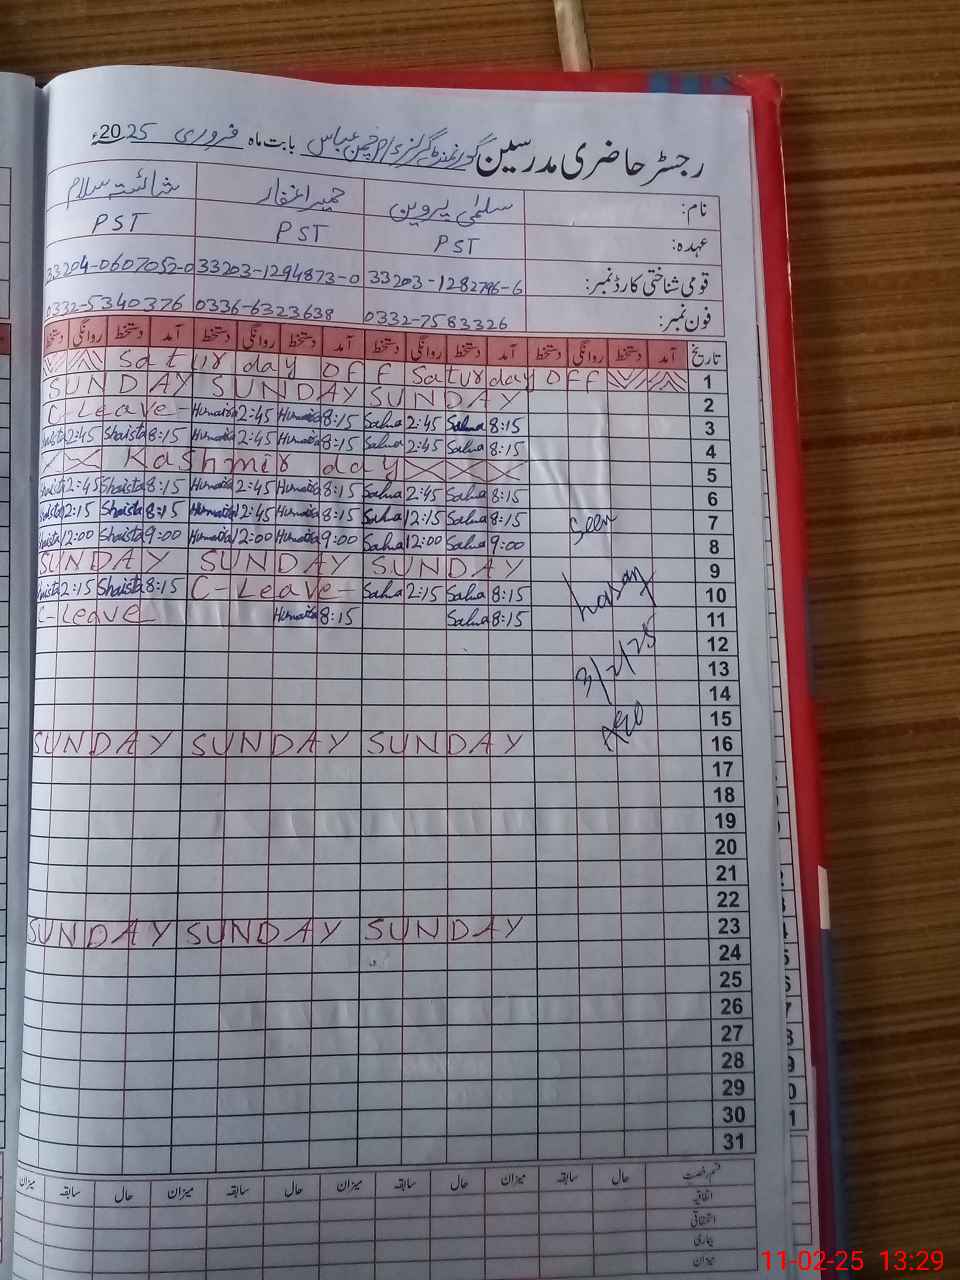 رجسٹر حاضری مدرسین گورنمنٹ گرلز بابت ماہ فروری 2025ء
نام: سلمیٰ پروین حمیرا غفار شائستہ سلام
عہدہ: PST PST PST
قومی شناختی کارڈ نمبر: 33203-1282796-6 33203-1294873-0 33204-0607052-0
فون نمبر: 0332-7583326 0336-6323638 0332-5340376
تاریخ آمد دستخط روانگی دستخط آمد دستخط روانگی دستخط آمد دستخط روانگی دستخط آمد دستخط روانگی دستخط
Saturday off Saturday off 1
SUNDAY SUNDAY SUNDAY 2
C-Leave- Humaira 2:45 Humaira 8:15 Salma 2:45 Salma 8:15 3
Shaista 2:45 Shaista 8:15 Humaira 2:45 Humaira 8:15 Salma 2:45 Salma 8:15 4
Kashmir day 5
Shaista 2:45 Shaista 8:15 Humaira 2:45 Humaira 8:15 Salma 2:45 Salma 8:15 6
Shaista 12:15 Shaista 8:15 Humaira 12:45 Humaira 8:15 Salma 12:15 Salma 8:15 7
Seen
Shaista 12:00 Shaista 9:00 Humaira 12:00 Humaira 9:00 Salma 12:00 Salma 9:00 8
SUNDAY SUNDAY SUNDAY 9
Shaista 2:15 Shaista 8:15 C-Leave- Salma 2:15 Salma 8:15 10
C-Leave Humaira 8:15 Salma 8:15 11
12
3/2/25
13
14
15
AEO
SUNDAY SUNDAY SUNDAY 16
17
18
19
20
21
22
SUNDAY SUNDAY SUNDAY 23
24
25
26
27
28
29
30
31
قسم رخصت حال سابقہ میزان حال سابقہ میزان حال سابقہ میزان
اتفاقیہ
استحقاقی
بیماری
میزان
11-02-25 13:29